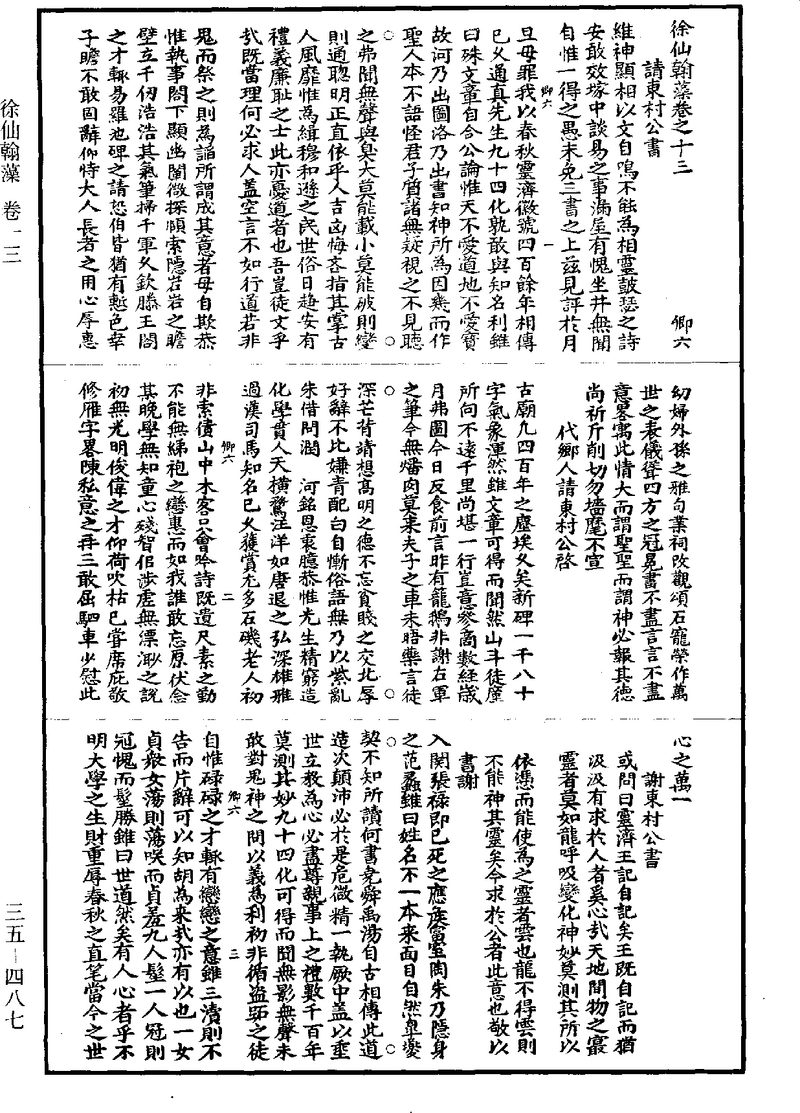 徐仙翰藻卷之十三 卿六
請東村公書
維神顯相以文自鳴不能為相靈鼓瑟之詩
安敢效塚中談易之事滿屋有愧坐井無聞
自惟一得之愚未免三書之上茲見評於月
旦毋罪我以春秋靈濟徽號四百餘年相傳
已久通真先生九四化孰敢與知名利雖
曰殊文章自合公論惟天不愛道地不愛寶
故河乃出圖洛乃出書知神所為因幾而作
聖人本不語怪君子質諸無疑視之不見聽
之弗聞無聲與臭大莫能載小莫能破則變
則通聰明正直依乎人吉凶悔吝指其掌古
人風靡惟為緝穆和遜之民世俗日趨安有
禮義廉恥之士此亦憂道者也吾豈徒文乎
哉既當理何必求人蓋空言不如行道若非
鬼而祭之則為諂所謂成其意者毋自欺恭
惟執事閣下顯幽闡微探賾索隱岩岩之瞻
壁立千仞浩浩其氣筆掃千軍久欽滕王閣
之才輒易羅池碑之請恐伯皆猶有慙色幸
子瞻不敢固辭仰恃大人長者之用心辱惠
幼婦外孫之雅句業祠改觀頌石寵榮作萬
世之表儀聳四方之冠冕書不盡言言不盡
意畧寓此情大而謂聖聖而謂神必報其德
尚祈斤削切勿墻麾不宣
代鄉人請東村公啓
古廟九四百年之塵埃久矣新碑一千八十
字氣象渾然雖文章可得而聞然山斗徒廑
所向不遠千里尚堪一行豈意參商數經歲
月弗圖今日反食前言昨有籠鵝非謝右軍
之筆今無燔肉莫來夫子之車未晤藥言徒
深芒背請想高明之德不忘貧賤之交北辱
好辭不比嫌青配白自慚俗語無乃以紫亂
朱借問潤 河銘恩東臆恭惟先生精窮造
化學貫人天橫騖汪洋如唐退之弘深雄雅
過漢司馬知名已久獲賞尤多石磯老人初
非索債山中木客只會吟詩既遺尺素之勤
不能無綈袍之戀裏而如我誰敢忘原伏念
其晚學無知童心殘智佀涉虛無漂渺之說
初無光明俊偉之才仰荷吹枯已嘗席庇敬
修雁字畧陳私意之再三敢屈駟車少慰此
心之萬一
謝東村公書
或問曰靈濟王記自記矣王既自記而猶
汲汲有求於人者奚心哉天地間物之最
靈者莫如龍呼吸變化神妙莫測其所以
依憑而能使為之靈者雲也龍不得雲則
不能神其靈矣今求於公者此意也敬以
書謝
入関張祿即已死之應侯富室陶朱乃隱身
之范蠡雖曰姓名不一本來面目自然臯夔
契不知所讀何書堯舜禹湯自古相傳此道
造次顛沛必於是危微精一執厥中蓋以垂
世立教為心必盡尊親事上之禮數千百年
莫測其妙九十四化可得而聞無影無聲未
敢對鬼神之問以義為利初非循盗跖之徒
自惟碌碌之才輒有戀戀之意雖三瀆則不
告而片辭可以知胡為來哉亦有以也一女
貞衆女蕩則蕩咲而貞羞九人髽一人冠則
冠愧而髽勝雖曰世道然矣有人心者乎不
明大學之生財重辱春秋之直筆當今之世
卿六
一
卿六
二
卿六
三
徐仙翰藻 卷一三
三五—四八七